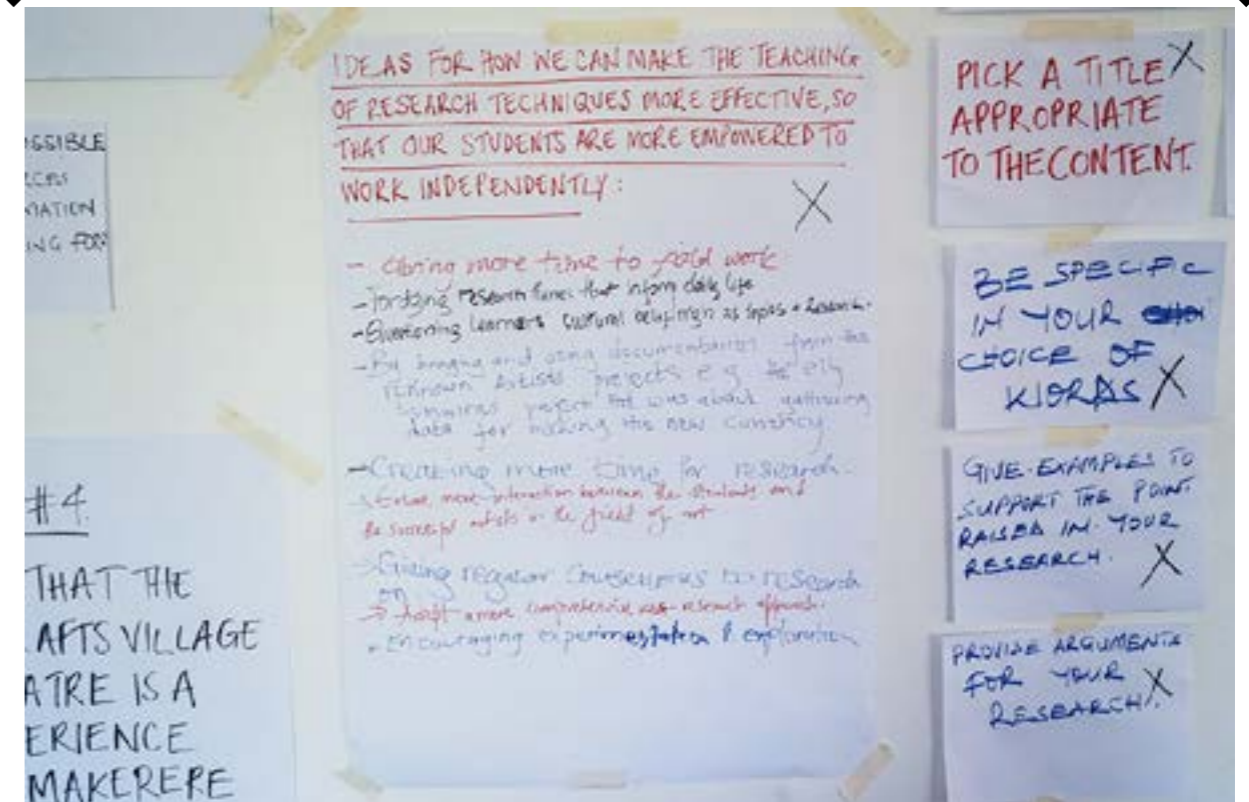 SSIBLE
CCESS
MATION
ING FOR
#4
THAT THE
AFTS VILLAGE
ATRE IS A
ERIENCE
MAKERERE
IDEAS FOR HOW WE CAN MAKE THE TEACHING
OF RESEARCH TECHNIQUES MORE EFFECTIVE, SO
THAT OUR STUDENTS ARE MORE EMPOWERED TO
WORK INDEPENDENTLY:
X
- Giving more time to field work
research that inform daily life
learners cultural as topics
- By bringing and using documentaries from the
renown artists projects e.g.
project that was about gathering
data for making his new currency
- Creating more time for research.
more interaction between the students and
the successful artists in the field of art
- Giving regular courseworks to research
on
→ Adopt a more comprehensive research approach.
- Encouraging experimentation & exploration
PICK A TITLE X
APPROPRIATE
TO THE CONTENT.
BE SPECIFIC
IN YOUR
CHOICE OF
X
GIVE EXAMPLES TO
SUPPORT THE POINT
RAISED IN YOUR
RESEARCH. X
PROVIDE ARGUMENTS
FOR YOUR X
RESEARCH.